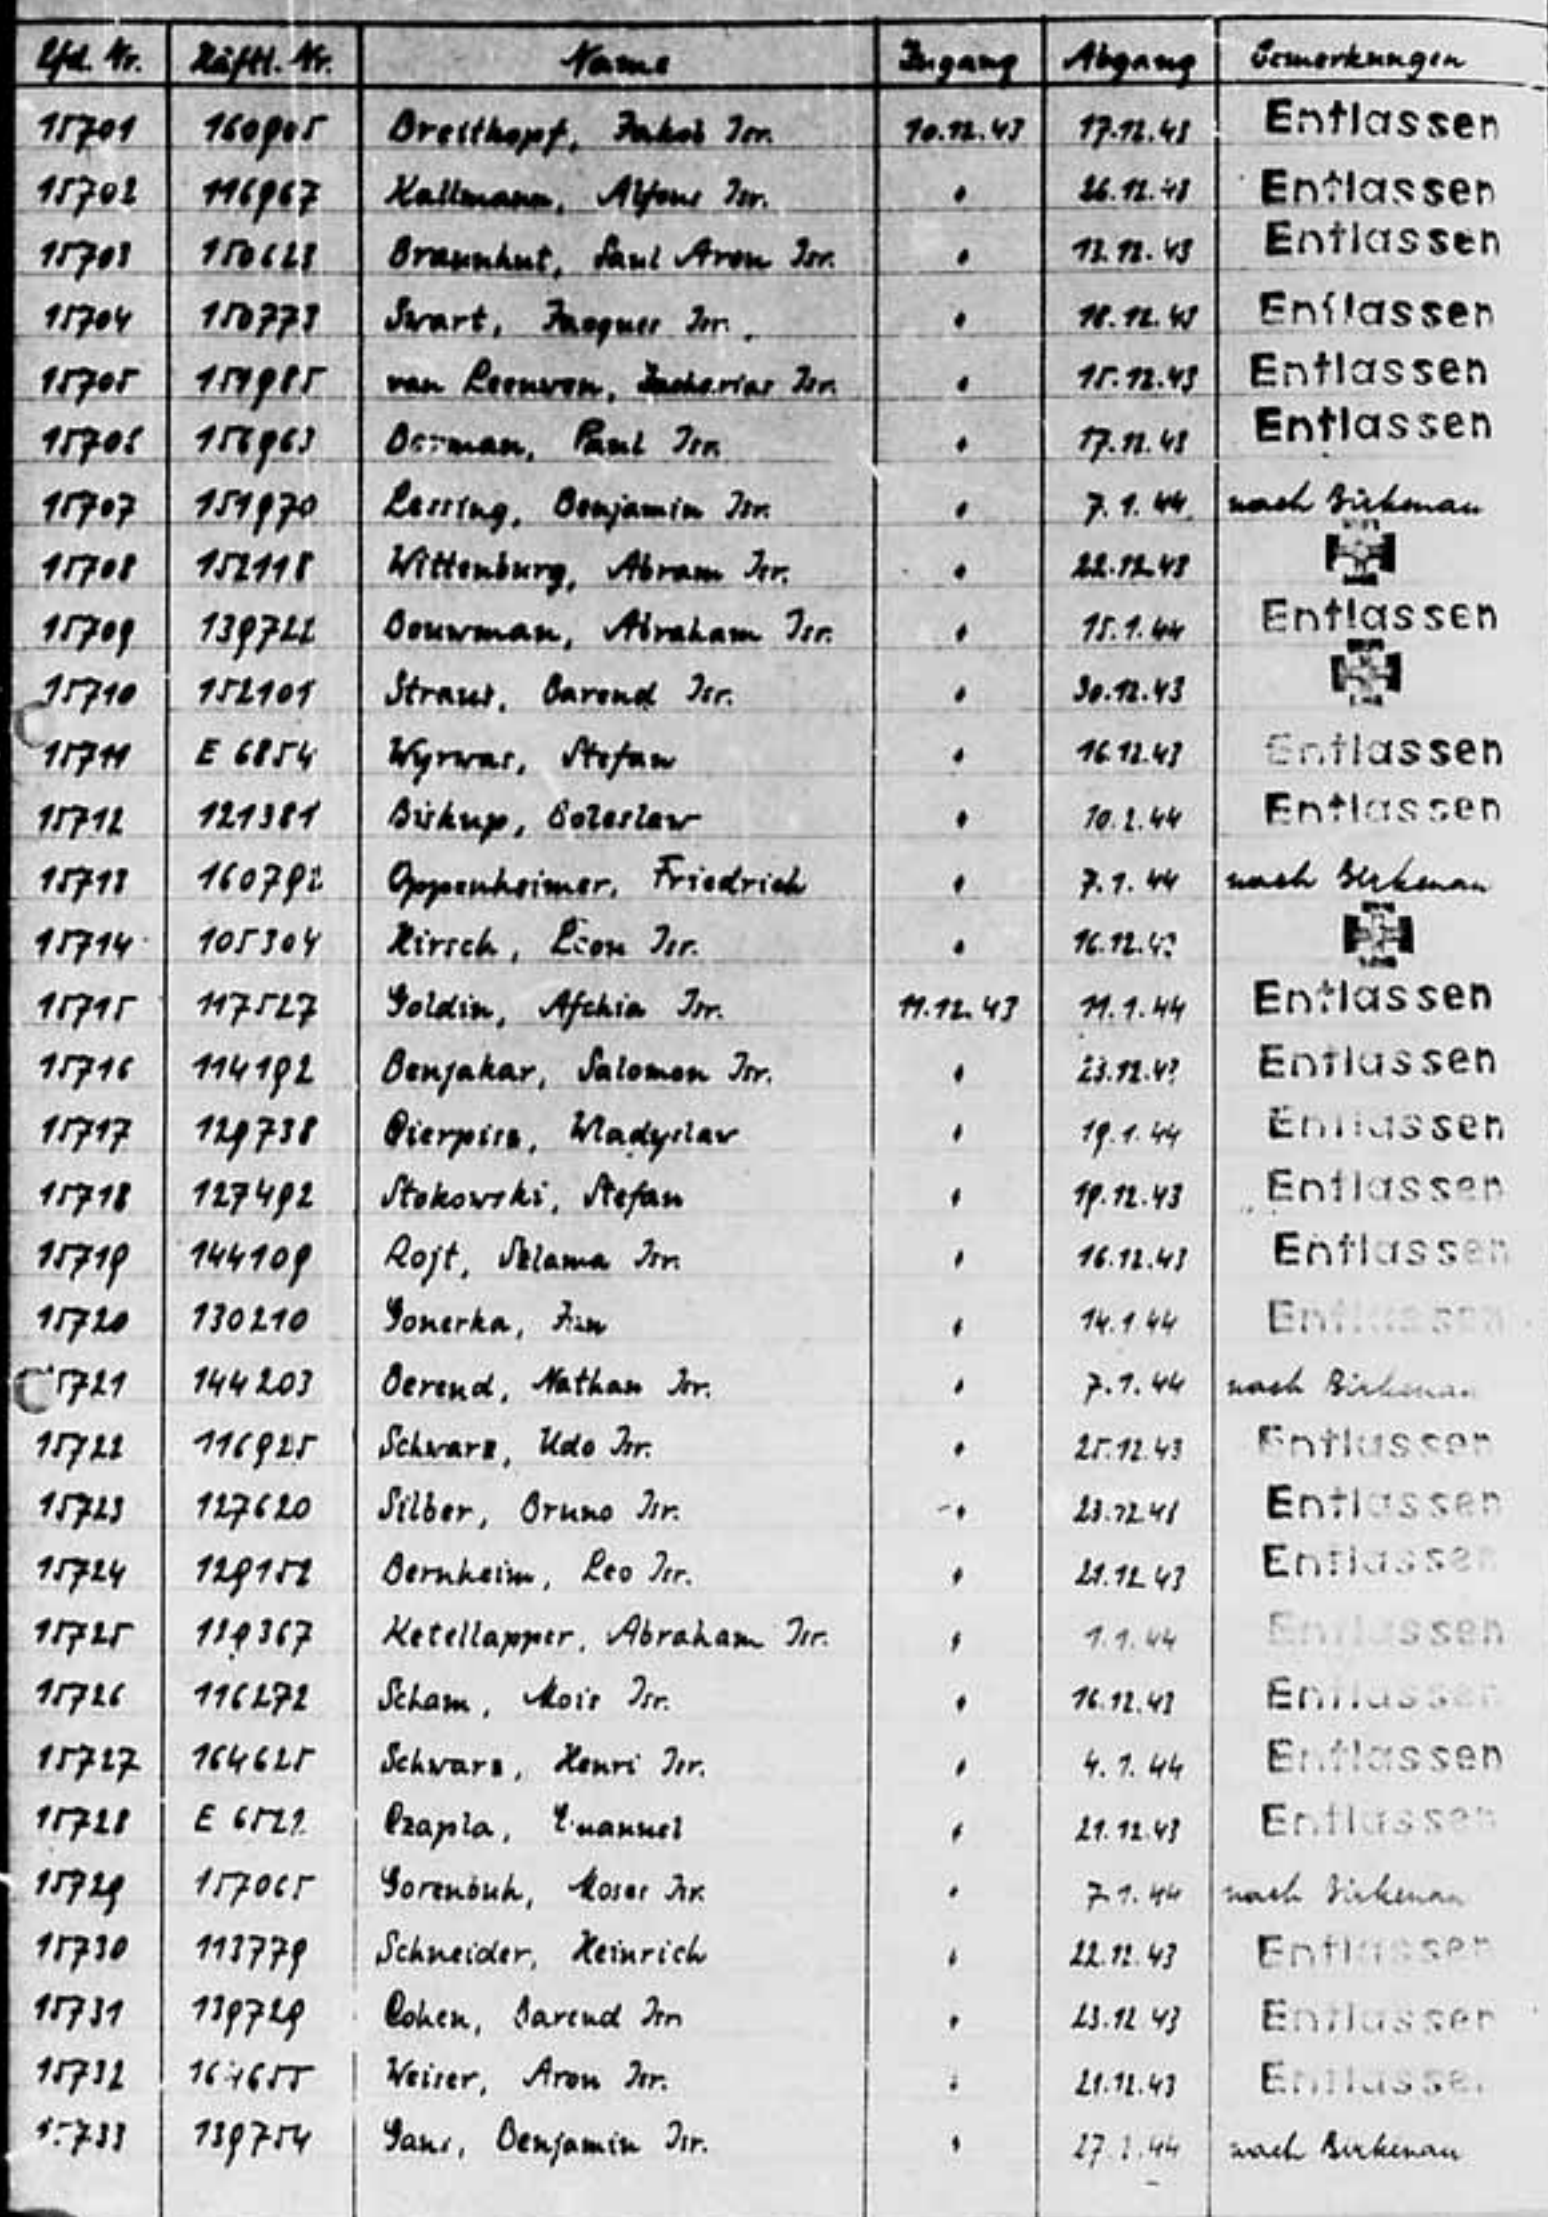 Lfd. Nr. Häftl. Nr. Name Zugang Abgang Bemerkungen
15701 160905 Breitkopf, Jakob Isr. 10.12.43 17.12.43 Entlassen
15702 116967 Kallmann, Alfons Isr. " 26.12.43 Entlassen
15703 150623 Braunhut, Saul Aron Isr. " 12.12.43 Entlassen
15704 150773 Swart, Jacques Isr. " 18.12.43 Entlassen
15705 151985 van Leeuwen, Zacharias Isr. " 15.12.43 Entlassen
15706 156963 Paul Isr. " 17.12.43 Entlassen
15707 151970 Lessing, Benjamin Isr. " 7.1.44 nach Birkenau
15708 152118 Wittenburg, Abram Isr. " 22.12.43
15709 139722 Bouwman, Abraham Isr. " 15.1.44 Entlassen
15710 152101 Straus, Barend Isr. " 30.12.43
15711 E 6854 Wyrwas, Stefan " 16.12.43 Entlassen
15712 121381 Biskup, Boleslaw " 10.2.44 Entlassen
15713 160792 Oppenheimer, Friedrich " 7.1.44 nach Birkenau
15714 105304 Hirsch, Leon Isr. " 16.12.43
15715 117527 Goldin, Afchia Isr. 11.12.43 11.1.44 Entlassen
15716 114192 Benjakar, Salomon Isr. " 23.12.43 Entlassen
15717 129738 Cierpisz, Wladyslaw " 19.1.44 Entlassen
15718 127492 Stokowski, Stefan " 19.12.43 Entlassen
15719 144109 Rojt, Szlama Isr. " 16.12.43 Entlassen
15720 130210 Gonerka, Jan " 14.1.44 Entlassen
15721 144203 Berend, Nathan Isr. " 7.1.44 nach Birkenau
15722 116925 Schwarz, Udo Isr. " 25.12.43 Entlassen
15723 127620 Silber, Bruno Isr. " 23.12.43 Entlassen
15724 129152 Bernheim, Leo Isr. " 21.12.43 Entlassen
15725 139367 Ketellapper, Abraham Isr. " 1.1.44 Entlassen
15726 116272 Scham, Mois Isr. " 16.12.43 Entlassen
15727 164625 Schwarz, Henri Isr. " 4.1.44 Entlassen
15728 E 6521 Czapla, Emanuel " 21.12.43 Entlassen
15729 157065 Gorenbuh, Moses Isr. " 7.1.44 nach Birkenau
15730 113779 Schneider, Heinrich " 22.12.43 Entlassen
15731 139729 Cohen, Barend Isr. " 23.12.43 Entlassen
15732 Weiser, Aron Isr. " 21.12.43 Entlassen
15733 139754 Gans, Benjamin Isr. " nach Birkenau